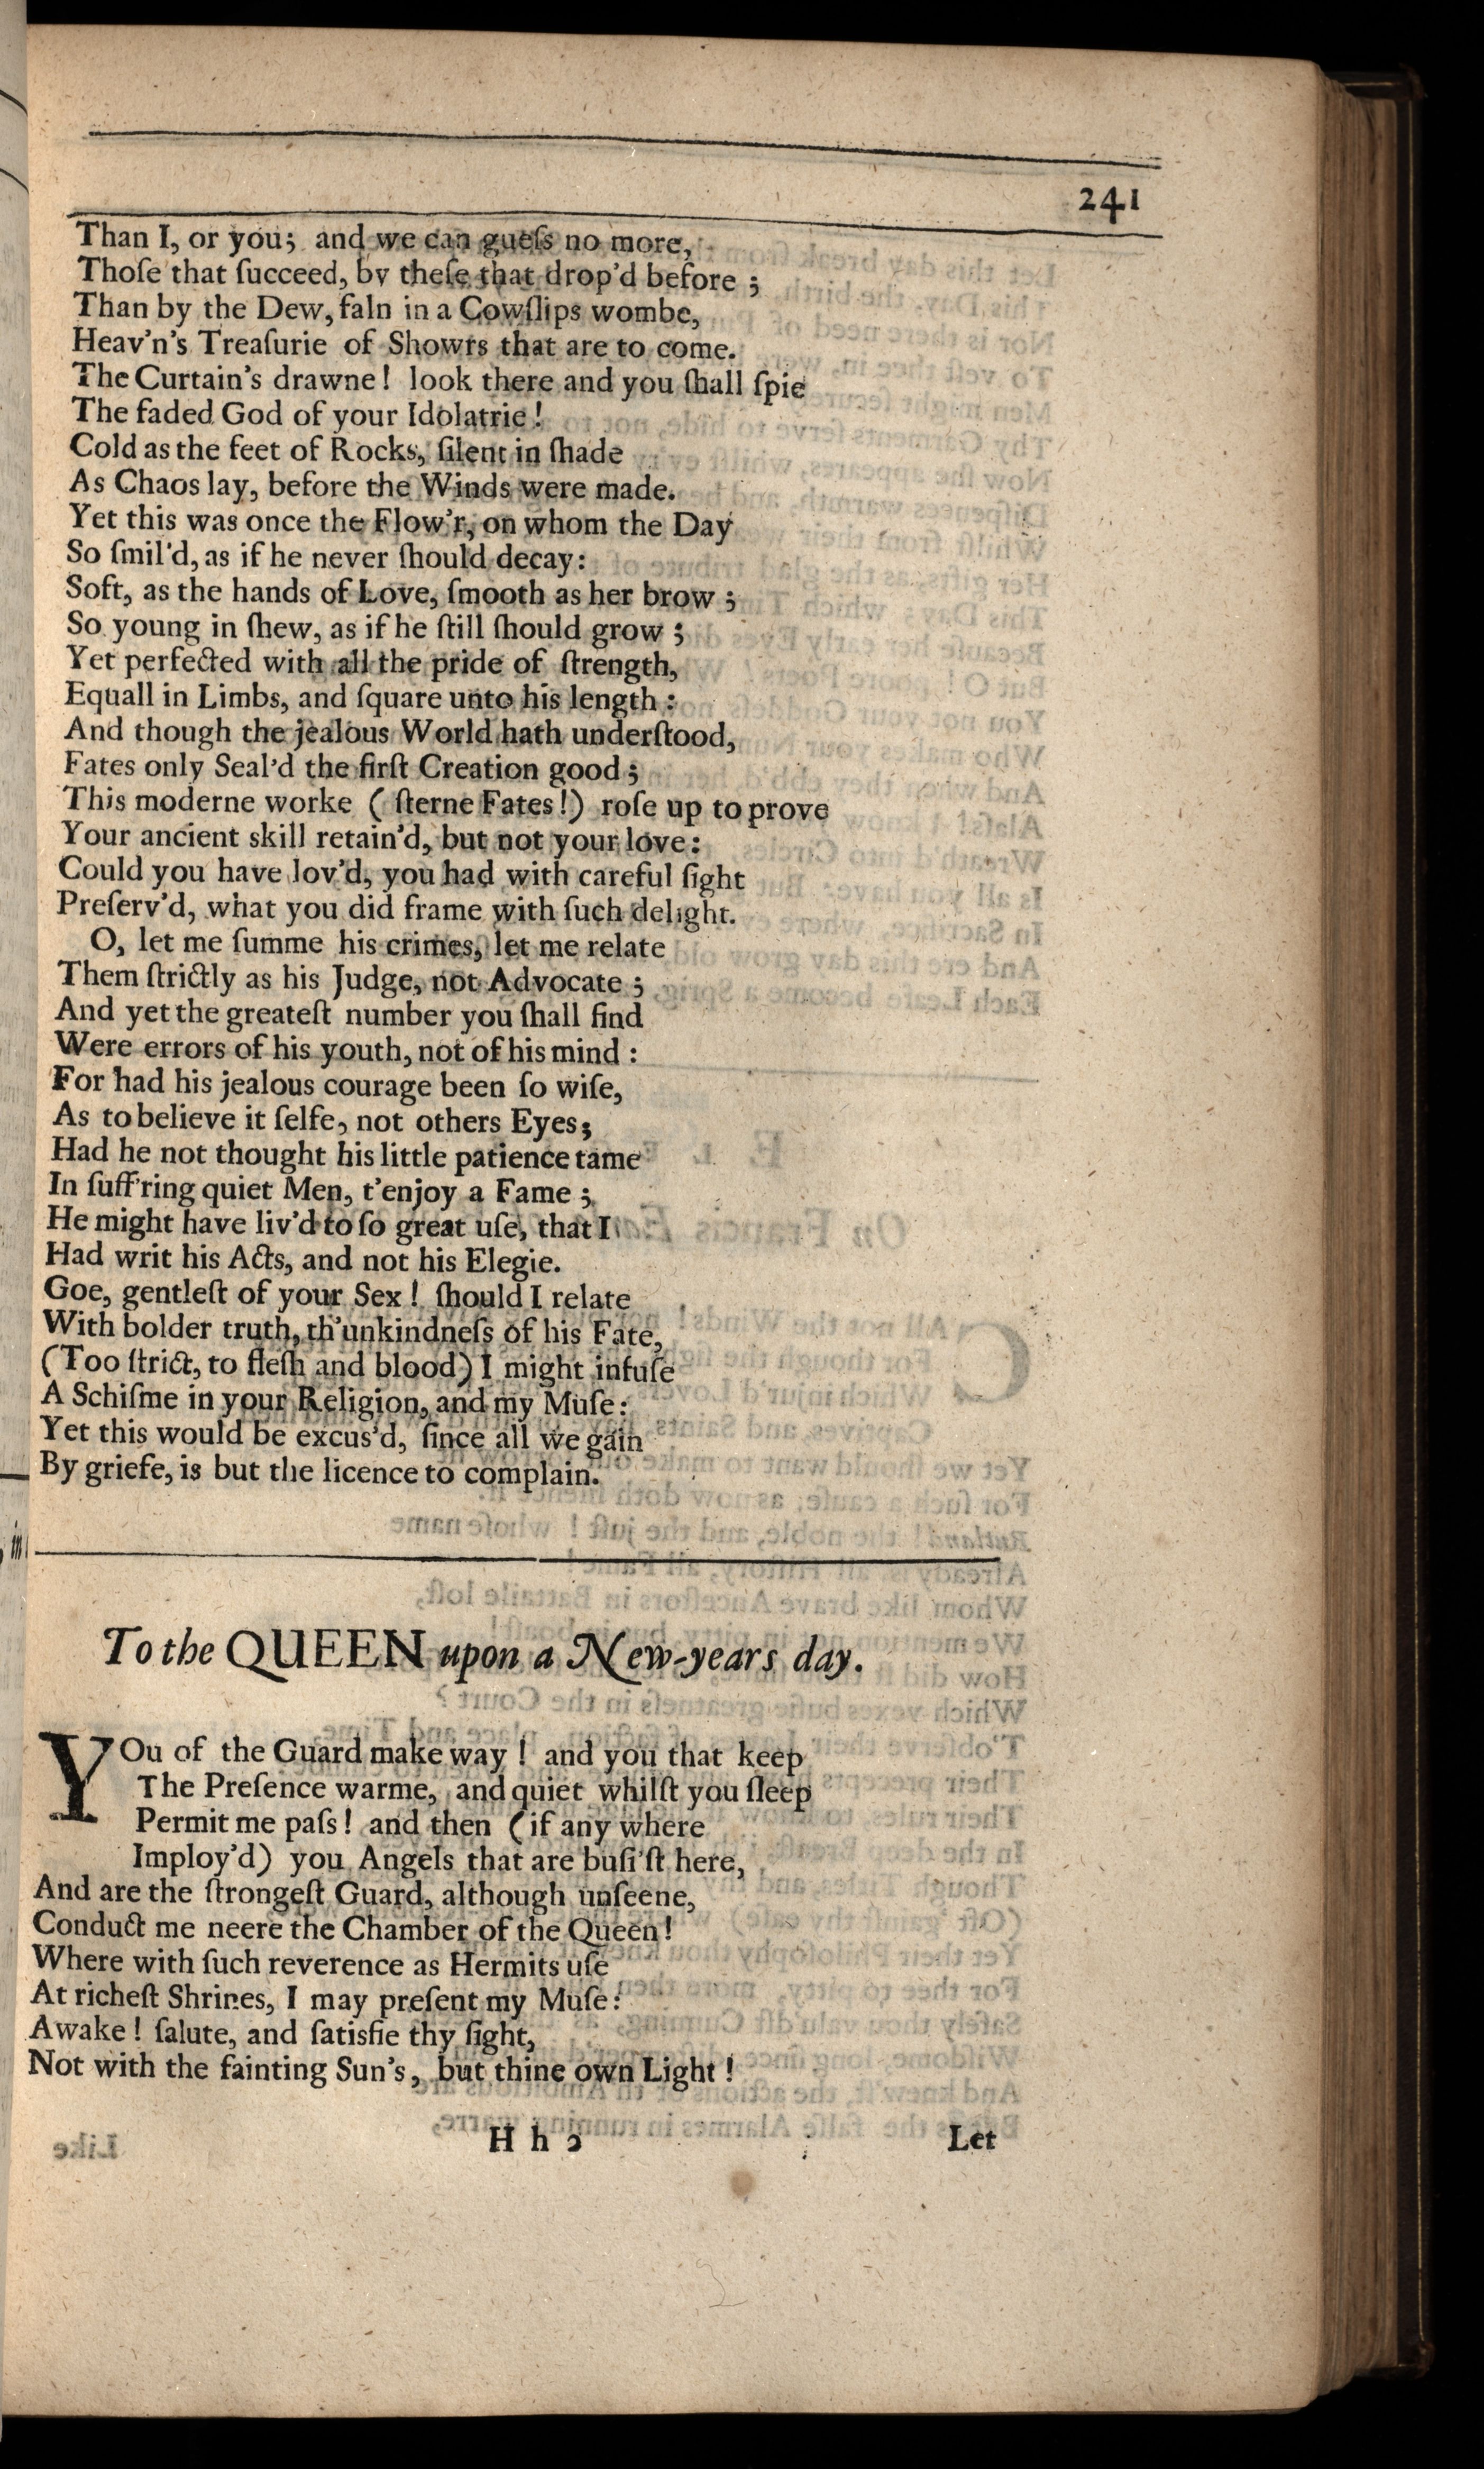 241
Than I, or you; and we can gueſs no more,
Thoſe that ſucceed, by theſe that drop'd before ;
Than by the Dew, faln in a Cowſlips wombe,
Heav'n's Treaſurie of Showrs that are to come.
The Curtain's drawne! look there and you ſhall ſpie
The faded God of your Idolatrie !
Cold as the feet of Rocks, ſilent in ſhade
As Chaos lay, before the Winds were made.
Yet this was once the Flow'r, on whom the Day
So ſmil'd, as if he never ſhould decay:
Soft, as the hands of Love, ſmooth as her brow ;
So young in ſhew, as if he ſtill ſhould grow ;
Yet perfected with all the pride of ſtrength,
Equall in Limbs, and ſquare unto his length :
And though the jealous World hath underſtood,
Fates only Seal'd the firſt Creation good ;
This moderne worke ( ſterne Fates !) roſe up to prove
Your ancient skill retain'd, but not your love :
Could you have lov'd, you had with careful ſight
Preſerv'd, what you did frame with ſuch delight.
O, let me ſumme his crimes, let me relate
Them ſtrictly as his Judge, not Advocate ;
And yet the greateſt number you ſhall find
Were errors of his youth, not of his mind :
For had his jealous courage been ſo wiſe,
As to believe it ſelfe, not others Eyes;
Had he not thought his little patience tame
In ſuff'ring quiet Men, t'enjoy a Fame ;
He might have liv'd to ſo great uſe, that I
Had writ his Acts, and not his Elegie.
Goe, gentleſt of your Sex ! ſhould I relate
With bolder truth, th'unkindneſs of his Fate,
(Too ſtrict, to fleſh and blood) I might infuſe
A Schiſme in your Religion, and my Muſe :
Yet this would be excus'd, ſince all we gain
By griefe, is but the licence to complain.
To the QUEEN upon a New-years day.
YOu of the Guard make way ! and you that keep
The Preſence warme, and quiet whilſt you ſleep
Permit me paſs ! and then ( if any where
Imploy'd) you Angels that are buſi'ſt here,
And are the ſtrongeſt Guard, although unſeene,
Conduct me neere the Chamber of the Queen !
Where with ſuch reverence as Hermits uſe
At richeſt Shrines, I may preſent my Muſe :
Awake ! ſalute, and ſatisfie thy ſight,
Not with the fainting Sun's, but thine own Light !
H h
Let